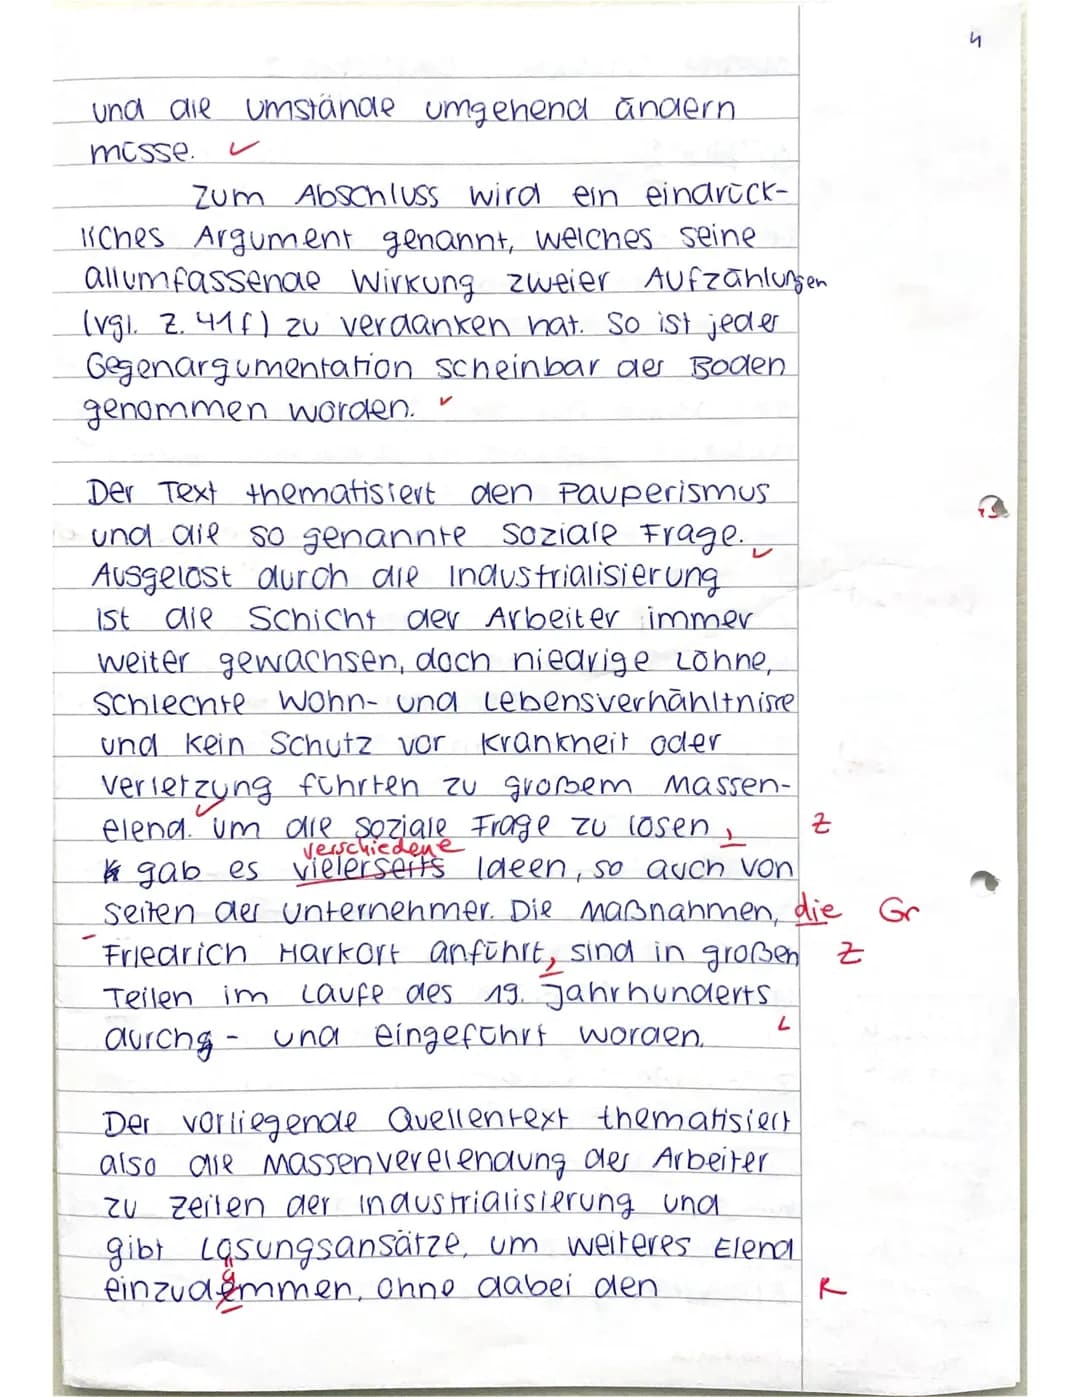 4
und die Umstände umgehend ändern
müsse. ✓
Zum Abschluss wird ein eindrück-
liches Argument genannt, welches seine
allumfassende Wirkung zweier Aufzählungen
(vgl. Z. 41f) zu verdanken hat. So ist jeder
Gegenargumentation scheinbar der Boden
genommen worden. ✓
Der Text thematisiert den Pauperismus
und die so genannte Soziale Frage. ✓
Ausgelöst durch die Industrialisierung
ist die Schicht der Arbeiter immer
weiter gewachsen, doch niedrige Löhne,
schlechte Wohn- und Lebensverhähltnisse
und kein Schutz vor Krankheit oder
Verletzung führten zu großem Massen-
elend. ✓ Um die Soziale Frage zu lösen, Z
verschiedene
gab es vielerseits Ideen, so auch von
Seiten der Unternehmer. Die Maßnahmen, die Gr
Friedrich Harkort anführt, sind in großen Z
Teilen im Laufe des 19. Jahrhunderts
durchg- und eingeführt worden.
Der vorliegende Quellentext thematisiert
also die Massenverelendung der Arbeiter
zu Zeiten der Industrialisierung und
gibt Lösungsansätze, um weiteres Elend
einzudämmen, ohne dabei den R